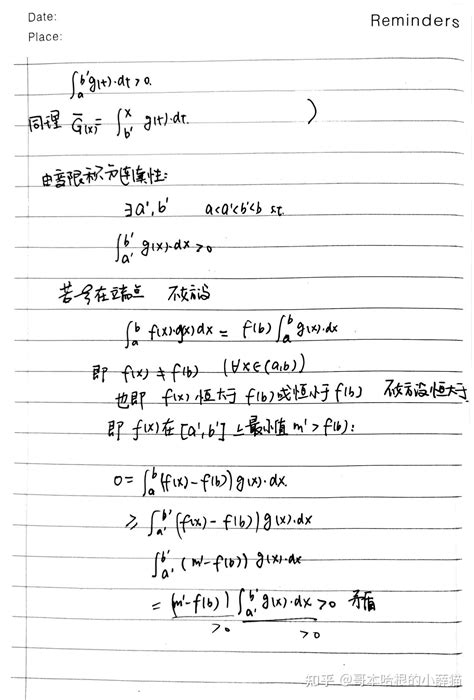 Date:
Reminders
Place:
∫_a^{b'} g(t)·dt > 0.
同理 G̅(x) = ∫_{b'}^x g(t)·dt. )
由变限积分连续性:
∃ a', b' a<a'<b'<b s.t.
∫_{a'}^{b'} g(x)·dx > 0
若 ξ 在端点 不妨设
∫_a^b f(x)·g(x) dx = f(b) ∫_a^b g(x)·dx
即 f(x) ≠ f(b) (∀x∈(a,b))
也即 f(x) 恒大于 f(b) 或恒小于 f(b) 不妨设恒大于
即 f(x) 在 [a',b'] 上最小值 m' > f(b):
0 = ∫_a^b (f(x)-f(b)) g(x)·dx.
≥ ∫_{a'}^{b'} (f(x)-f(b)) g(x)·dx
∫_{a'}^{b'} (m'-f(b)) g(x)·dx
= (m'-f(b)) ∫_{a'}^{b'} g(x)·dx > 0 矛盾
>0 >0
知乎 @哥本哈根的小薛猫